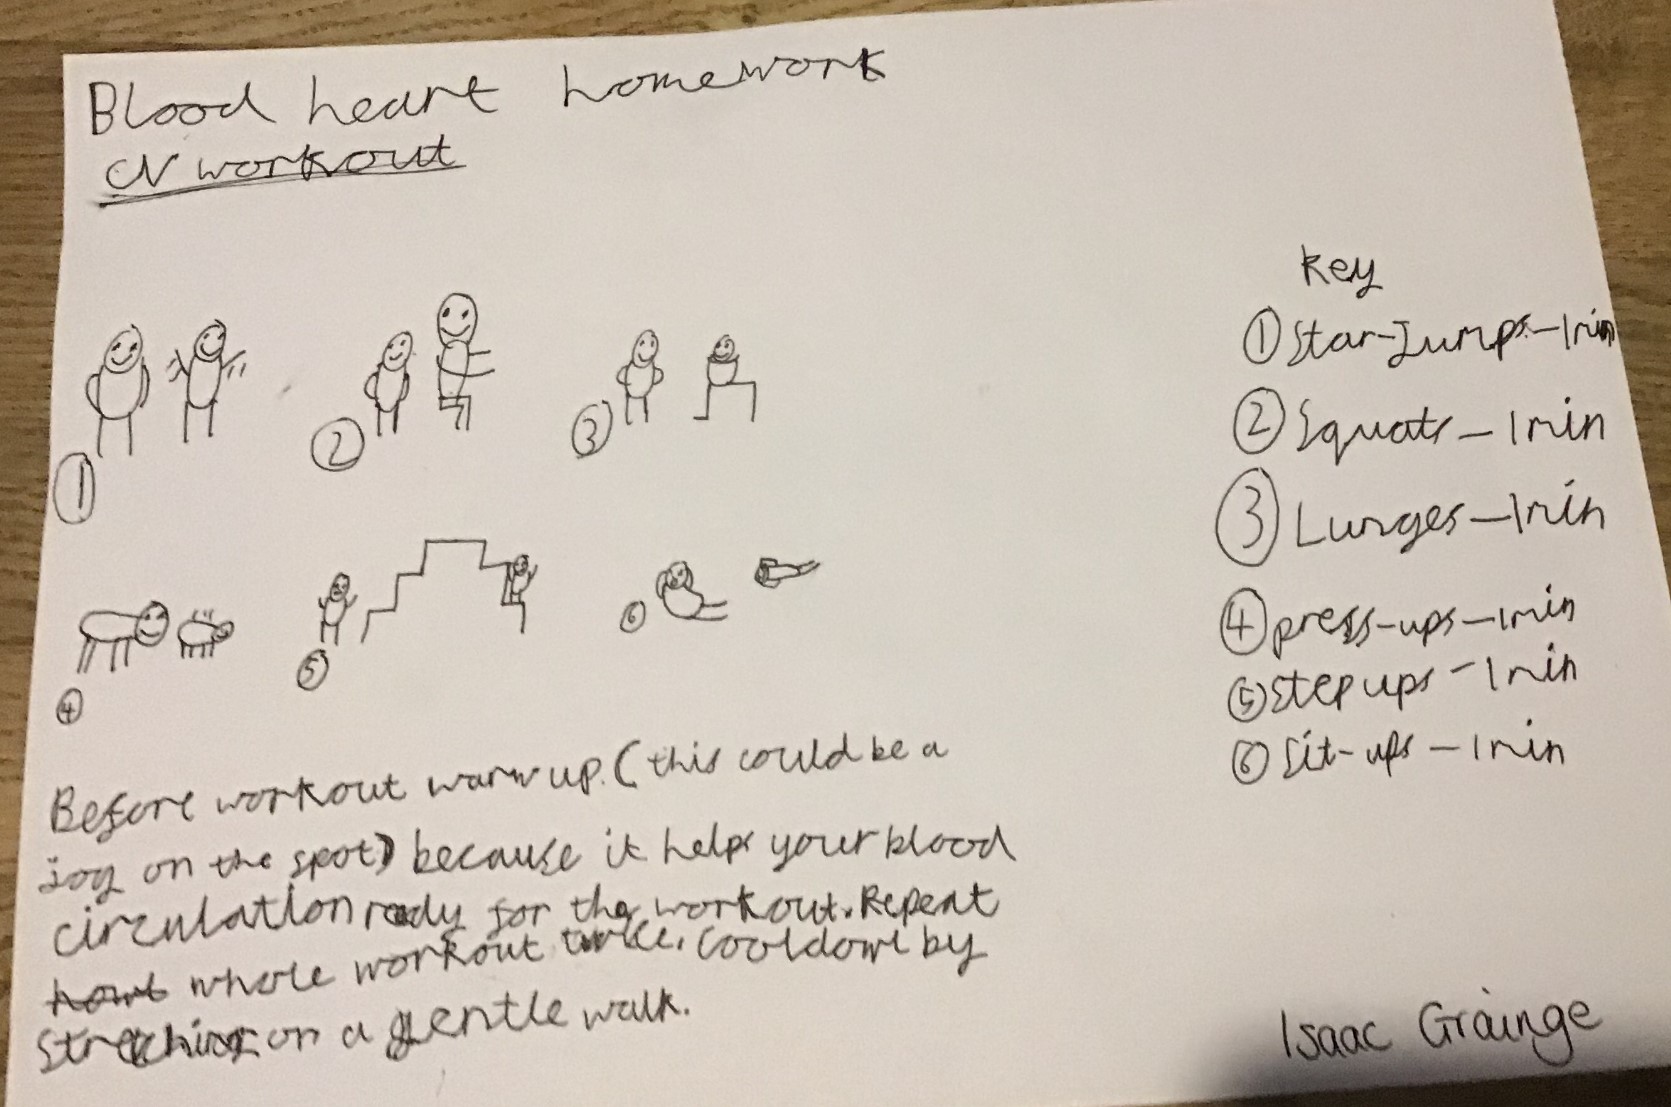 Blood heart homework
CV workout
Key
① Star-Jumps-1min
② Squats-1min
③ Lunges-1min
④ press-ups-1min
⑤ step ups-1min
⑥ Sit-ups-1min
①
②
③
④
⑤
⑥
Before workout warm up. (this could be a
jog on the spot) because it helps your blood
circulation ready for the workout. Repeat
whole workout twice. Cooldown by
Stretching or a gentle walk.
Isaac Grainge